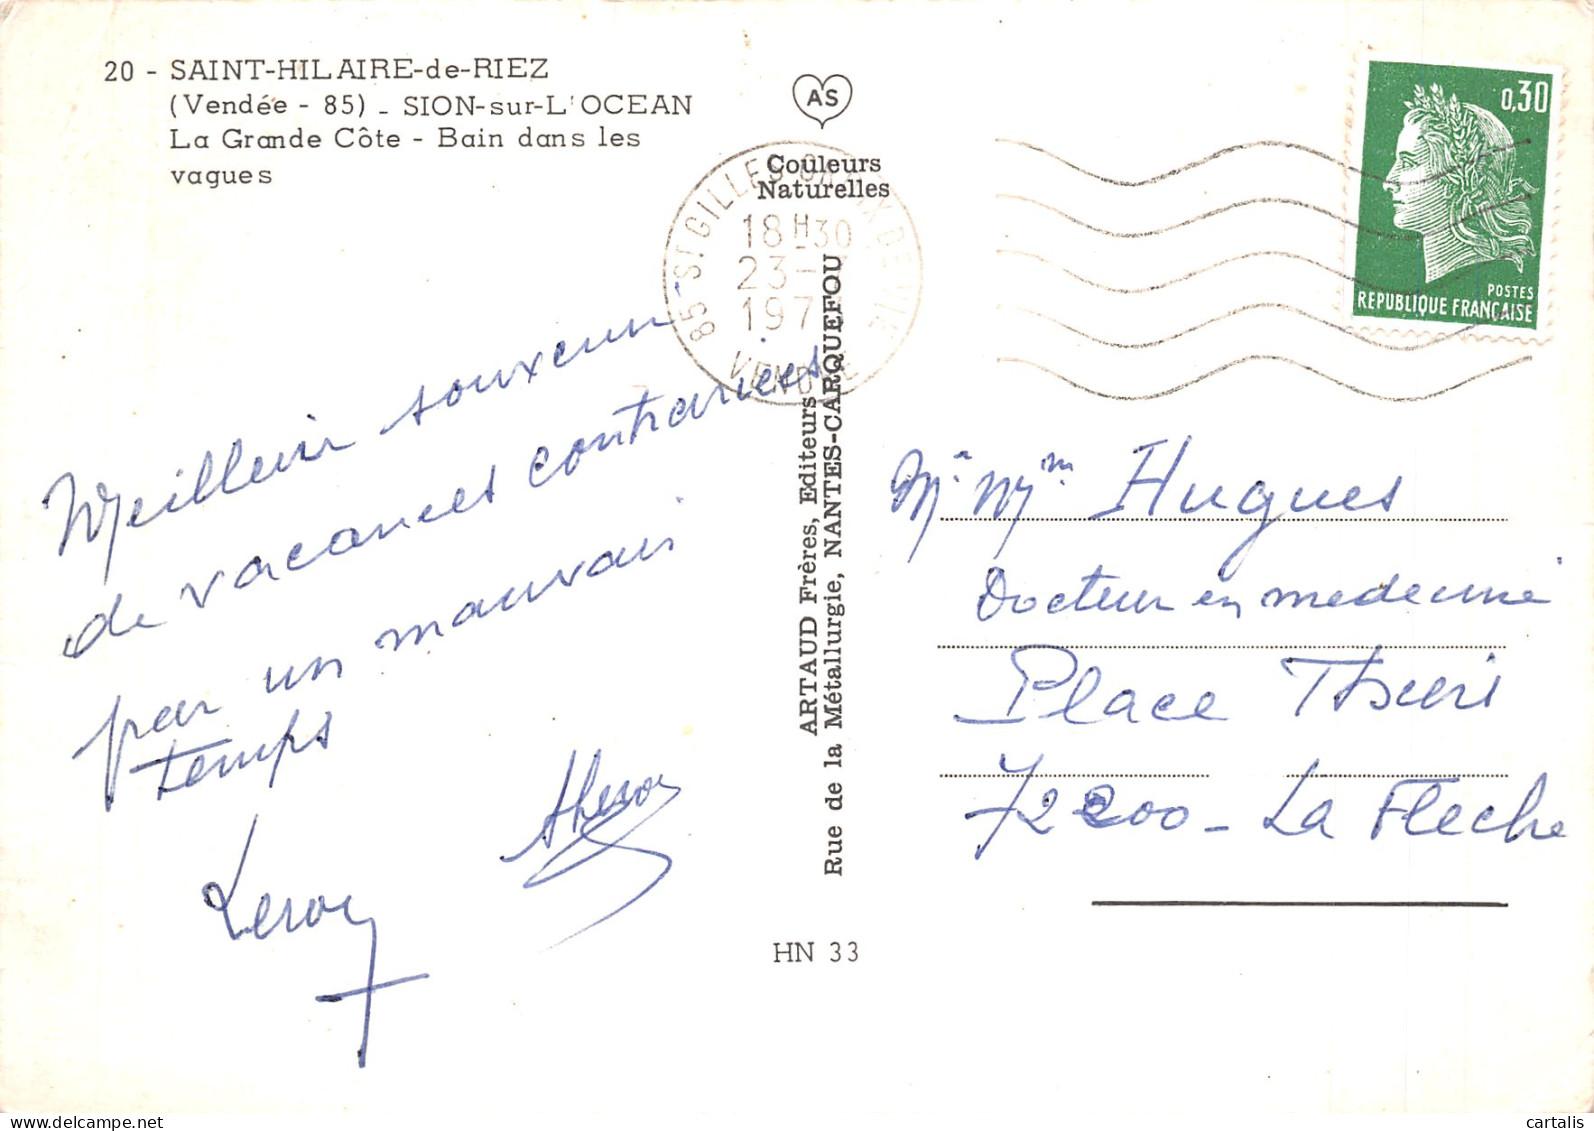 20 - SAINT-HILAIRE-de-RIEZ
(Vendée - 85) - SION-sur-L'OCEAN
La Grande Côte - Bain dans les
vagues
AS
Couleurs
Naturelles
85-ST GILLES CROIX DE VIE
18H30
23-
197
VENDEE
0,30
POSTES
REPUBLIQUE FRANÇAISE
Meilleur souvenir
de vacances contrariées
par un mauvais
temps
Leroy
ARTAUD Frères, Editeurs
Rue de la Métallurgie, NANTES-CARQUEFOU
HN 33
Mr Mme Hugues
Docteur en medecine
Place Thiers
72200 - La Fleche
cartalis.com